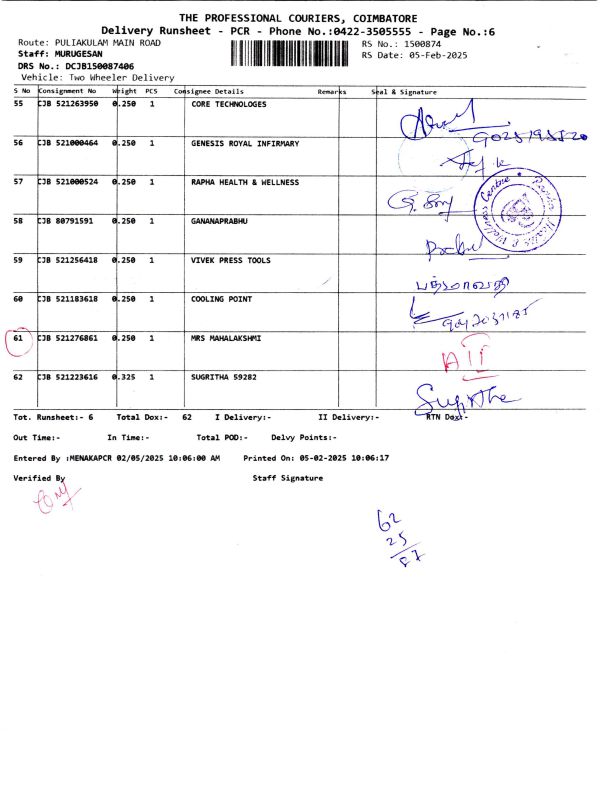 THE PROFESSIONAL COURIERS, COIMBATORE
Delivery Runsheet - PCR - Phone No.:0422-3505555 - Page No.:6
Route: PULIAKULAM MAIN ROAD RS No.: 1500874
Staff: MURUGESAN RS Date: 05-Feb-2025
DRS No.: DCJB150087406
Vehicle: Two Wheeler Delivery
S No Consignment No Weight PCS Consignee Details Remarks Seal & Signature
55 CJB 521263950 0.250 1 CORE TECHNOLOGES
56 CJB 521000464 0.250 1 GENESIS ROYAL INFIRMARY
57 CJB 521000524 0.250 1 RAPHA HEALTH & WELLNESS
58 CJB 80791591 0.250 1 GANANAPRABHU
59 CJB 521256418 0.250 1 VIVEK PRESS TOOLS பத்மாவதி
60 CJB 521183618 0.250 1 COOLING POINT
61 CJB 521276861 0.250 1 MRS MAHALAKSHMI
62 CJB 521223616 0.325 1 SUGRITHA 59282 Sugritha
Tot. Runsheet:- 6 Total Dox:- 62 I Delivery:- II Delivery:- RTN Dox:-
Out Time:- In Time:- Total POD:- Delvy Points:-
Entered By :MENAKAPCR 02/05/2025 10:06:00 AM Printed On: 05-02-2025 10:06:17
Verified By Staff Signature
62
25
87